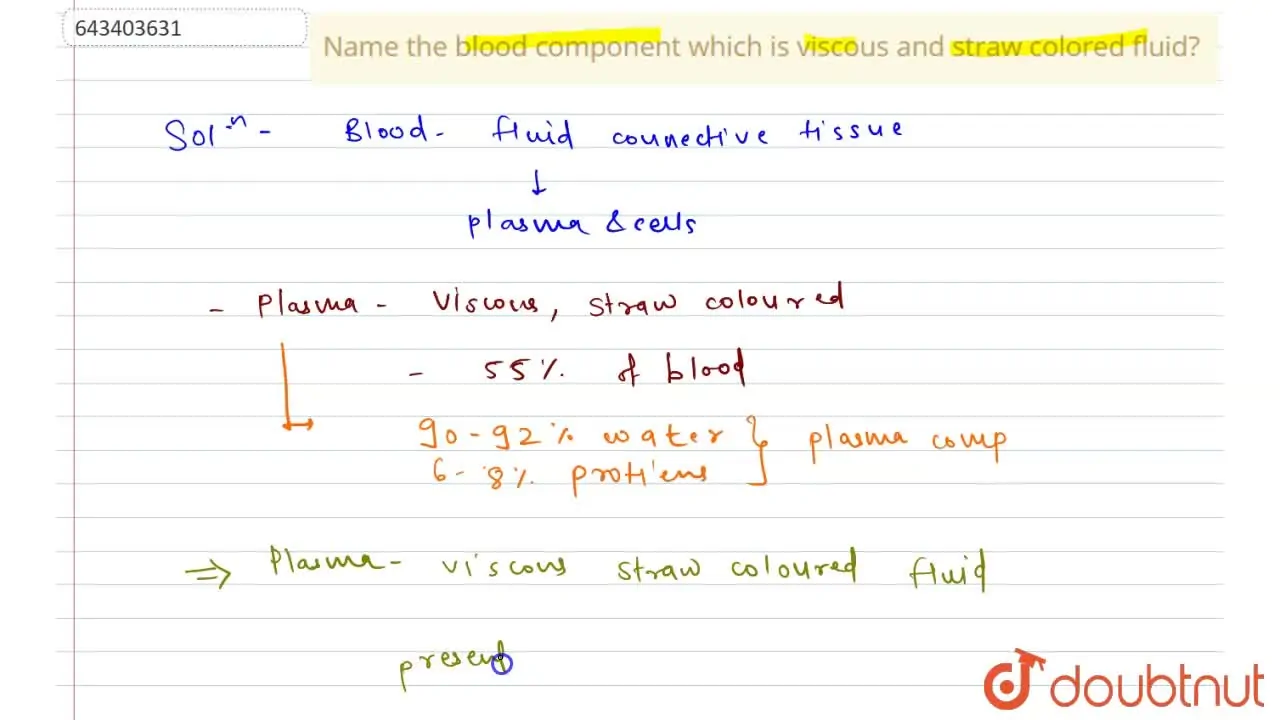 643403631
Name the blood component which is viscous and straw colored fluid?
Solⁿ - Blood - fluid connective tissue
↓
plasma & cells
- Plasma - Viscous, straw coloured
- 55% of blood
90-92% water } plasma comp
6-8% protiens
⇒ Plasma - viscous straw coloured fluid
present
doubtnut